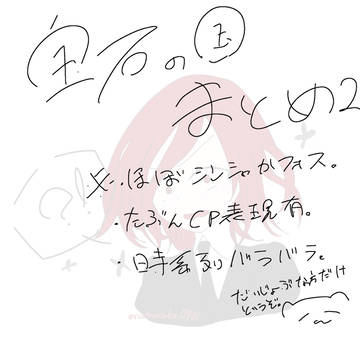 宝石の国
まとめ2
※・ほぼシンシャかフォス。
・たぶんCP表現有。
・時系列バラバラ。
だいじょぶな方だけ
どうぞ。
?!